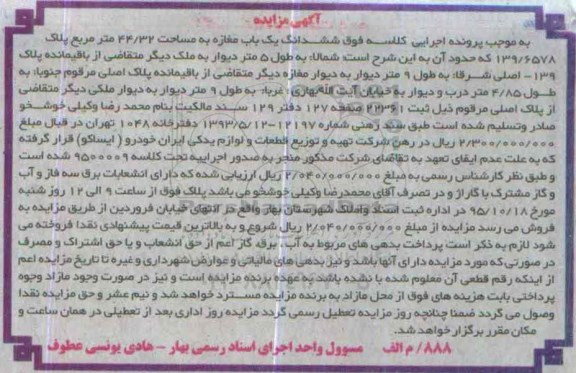 آگهی مزایده
به موجب پرونده اجرایی کلاسه فوق ششدانگ یک باب مغازه به مساحت ۴۴/۳۲ متر مربع پلاک
۱۳۹/۶۵۷۸ که حدود آن به این شرح است: شمالا: به طول ۵ متر دیوار به ملک دیگر متقاضی از باقیمانده پلاک
۱۳۹- اصلی شرقا: به طول ۹ متر دیوار به دیوار مغازه دیگر متقاضی از باقیمانده پلاک اصلی مرقوم جنوبا: به
طول ۴/۸۵ متر درب و دیوار به خیابان آیت الله بهاری، غربا: به طول ۹ متر دیوار به دیوار ملکی دیگر متقاضی
از پلاک اصلی مرقوم ذیل ثبت ۲۲۳۶۱ صفحه ۱۲۷ دفتر ۱۲۹ سند مالکیت بنام محمد رضا وکیلی خوشخو
صادر وتسلیم شده است طبق سند رهنی شماره ۱۲۱۹۷-۱۳۹۳/۵/۱۲ دفترخانه ۱۰۴۸ تهران در قبال مبلغ
۲/۳۰۰/۰۰۰/۰۰۰ ریال در رهن شرکت تهیه و توزیع قطعات و لوازم یدکی ایران خودرو ( ایساکو) قرار گرفته
که به علت عدم ایفای تعهد به تقاضای شرکت مذکور منجر به صدور اجراییه تحت کلاسه ۹۵۰۰۰۰۹ شده است
و طبق نظر کارشناس رسمی به مبلغ ۲/۰۴۰/۰۰۰/۰۰۰ ریال ارزیابی شده که دارای انشعابات برق سه فاز و آب
و گاز مشترک با گاراژ و در تصرف آقای محمدرضا وکیلی خوشخو می باشد پلاک فوق از ساعت ۹ الی ۱۲ روز شنبه
مورخ ۹۵/۱۰/۱۸ در اداره ثبت اسناد واملاک شهرستان بهار واقع در انتهای خیابان فروردین از طریق مزایده به
فروش می رسد مزایده از مبلغ ۲/۰۴۰/۰۰۰/۰۰۰ ریال شروع و به بالاترین قیمت پیشنهادی نقدا فروخته می
شود لازم به ذکر است پرداخت بدهی های مربوط به آب، برق، گاز اعم از حق انشعاب و یا حق اشتراک و مصرف
در صورتی که مورد مزایده دارای آنها باشد و نیز بدهی های مالیاتی و عوارض شهرداری و غیره تا تاریخ مزایده اعم
از اینکه رقم قطعی آن معلوم شده یا نشده باشد به عهده برنده مزایده است و نیز در صورت وجود مازاد وجوه
پرداختی بابت هزینه های فوق از محل مازاد به برنده مزایده مسترد خواهد شد و نیم عشر و حق مزایده نقدا
وصول می گردد ضمنا چنانچه روز مزایده تعطیل رسمی گردد مزایده روز اداری بعد از تعطیلی در همان ساعت و
مکان مقرر برگزار خواهد شد.
۸۸۸/ م الف مسوول واحد اجرای اسناد رسمی بهار - هادی یونسی عطوف